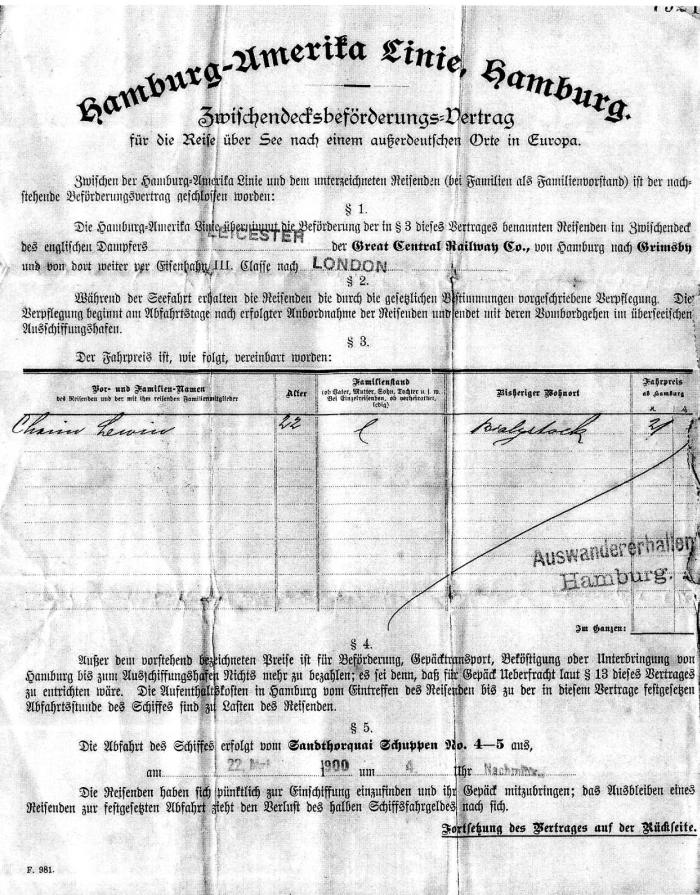 Hamburg-Amerika Linie, Hamburg.
Zwischendecksbeförderungs-Vertrag
für die Reise über See nach einem außerdeutschen Orte in Europa.
Zwischen der Hamburg-Amerika Linie und dem unterzeichneten Reisenden (bei Familien als Familienvorstand) ist der nach-
stehende Beförderungsvertrag geschlossen worden:
§ 1.
Die Hamburg-Amerika Linie übernimmt die Beförderung der in § 3 dieses Vertrages benannten Reisenden im Zwischendeck
des englischen Dampfers LEICESTER der Great Central Railway Co., von Hamburg nach Grimsby
und von dort weiter per Eisenbahn III. Classe nach LONDON
§ 2.
Während der Seefahrt erhalten die Reisenden die durch die gesetzlichen Bestimmungen vorgeschriebene Verpflegung. Die
Verpflegung beginnt am Abfahrtstage nach erfolgter Anbordnahme der Reisenden und endet mit deren Vonbordgehen im überseeischen
Ausschiffungshafen.
§ 3.
Der Fahrpreis ist, wie folgt, vereinbart worden:
Vor- und Familien-Namen
des Reisenden und der mit ihm reisenden Familienmitglieder
Alter
Familienstand
(ob Vater, Mutter, Sohn, Tochter u. s. w.
Bei Einzelreisenden, ob verheirathet,
ledig)
Bisheriger Wohnort
Fahrpreis
ab Hamburg
Chaim Lewin 22 Bialystock 21
Auswandererhallen
Hamburg.
Im Ganzen:
§ 4.
Außer dem vorstehend bezeichneten Preise ist für Beförderung, Gepäcktransport, Beköstigung oder Unterbringung von
Hamburg bis zum Ausschiffungshafen Nichts mehr zu bezahlen; es sei denn, daß für Gepäck Ueberfracht laut § 13 dieses Vertrages
zu entrichten wäre. Die Aufenthaltskosten in Hamburg vom Eintreffen des Reisenden bis zu der in diesem Vertrage festgesetzten
Abfahrtsstunde des Schiffes sind zu Lasten des Reisenden.
§ 5.
Die Abfahrt des Schiffes erfolgt vom Sandthorquai Schuppen No. 4—5 aus,
am 22. 1900 um 4. Uhr Nachmitt.
Die Reisenden haben sich pünktlich zur Einschiffung einzufinden und ihr Gepäck mitzubringen; das Ausbleiben eines
Reisenden zur festgesetzten Abfahrt zieht den Verlust des halben Schiffsfahrgeldes nach sich.
Fortsetzung des Vertrages auf der Rückseite.
F. 981.